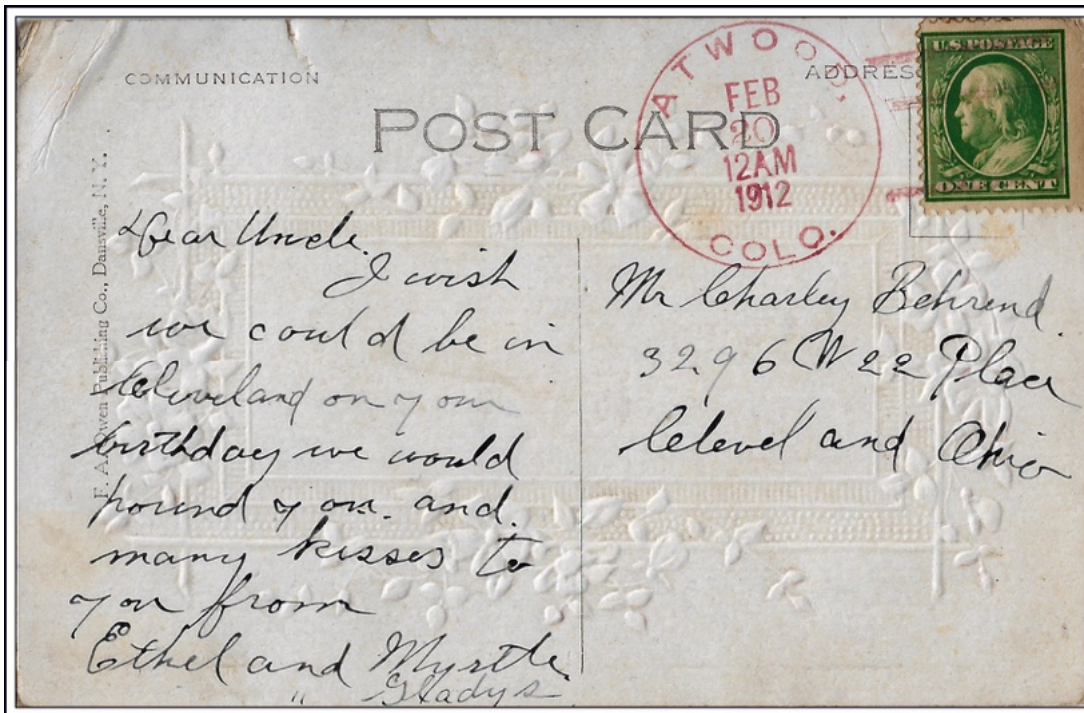 COMMUNICATION
ADDRES
POST CARD
ATWOOD,
FEB
20
12AM
1912
COLO.
U.S. POSTAGE
ONE CENT
F. A. Owen Publishing Co., Dansville, N. Y.
Dear Uncle.
I wish
we could be in
Cleveland on your
birthday we would
pound you. and.
many kisses to
you from
Ethel and Myrtle.
" Gladys
Mr Charley Behrend.
3296 W 22 Place
Clevel and Ohio